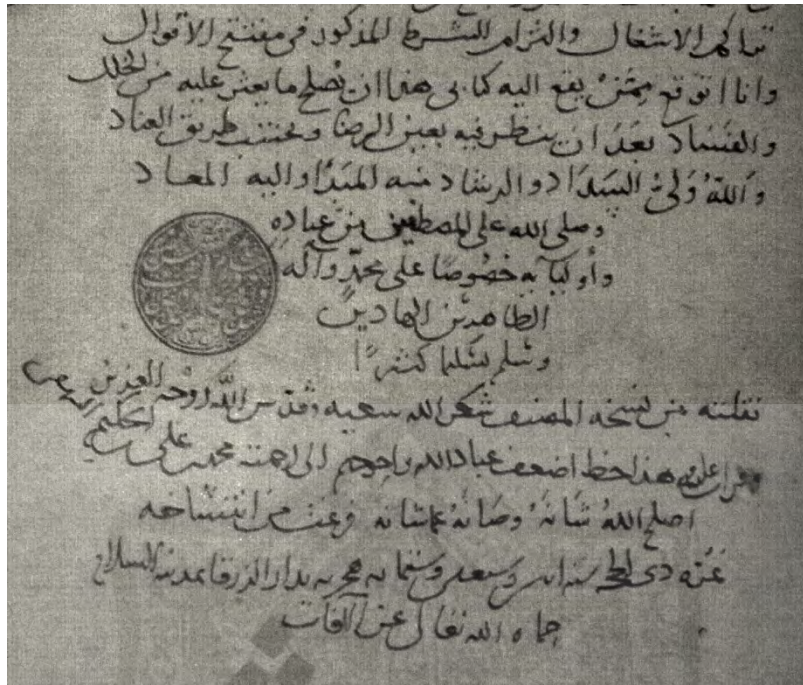 تراكم الاشغال والتزام الشرط المذكور فى مفتتح الاقوال
وانا اتوقع ممن يقع اليه كتابى هذا ان يصلح ما يعثر عليه من الخلل
والفساد بعد ان ينظر فيه بعين الرضا ويجتنب طريق العناد
والله ولى السداد والرشاد منه المبدا واليه المعاد
وصلى الله على المصطفين من عباده
وأوليائه خصوصا على محمد وآله
الطاهرين الهادين
وسلم تسليما كثيرا
نقلته من نسخة المصنف شكر الله سعيه وقدس الله روحه العزيز
وقرات عليه هذا خط اضعف عباد الله واحوجهم الى رحمته محمد بن على
اصلح الله شانه وصانه عما شانه فرغت من انتساخه
غرة ذى الحجة سنة وسبعين وستمايه هجريه بدار الزرقا بمدينة السلام
حماه الله تعالى عن الآفات